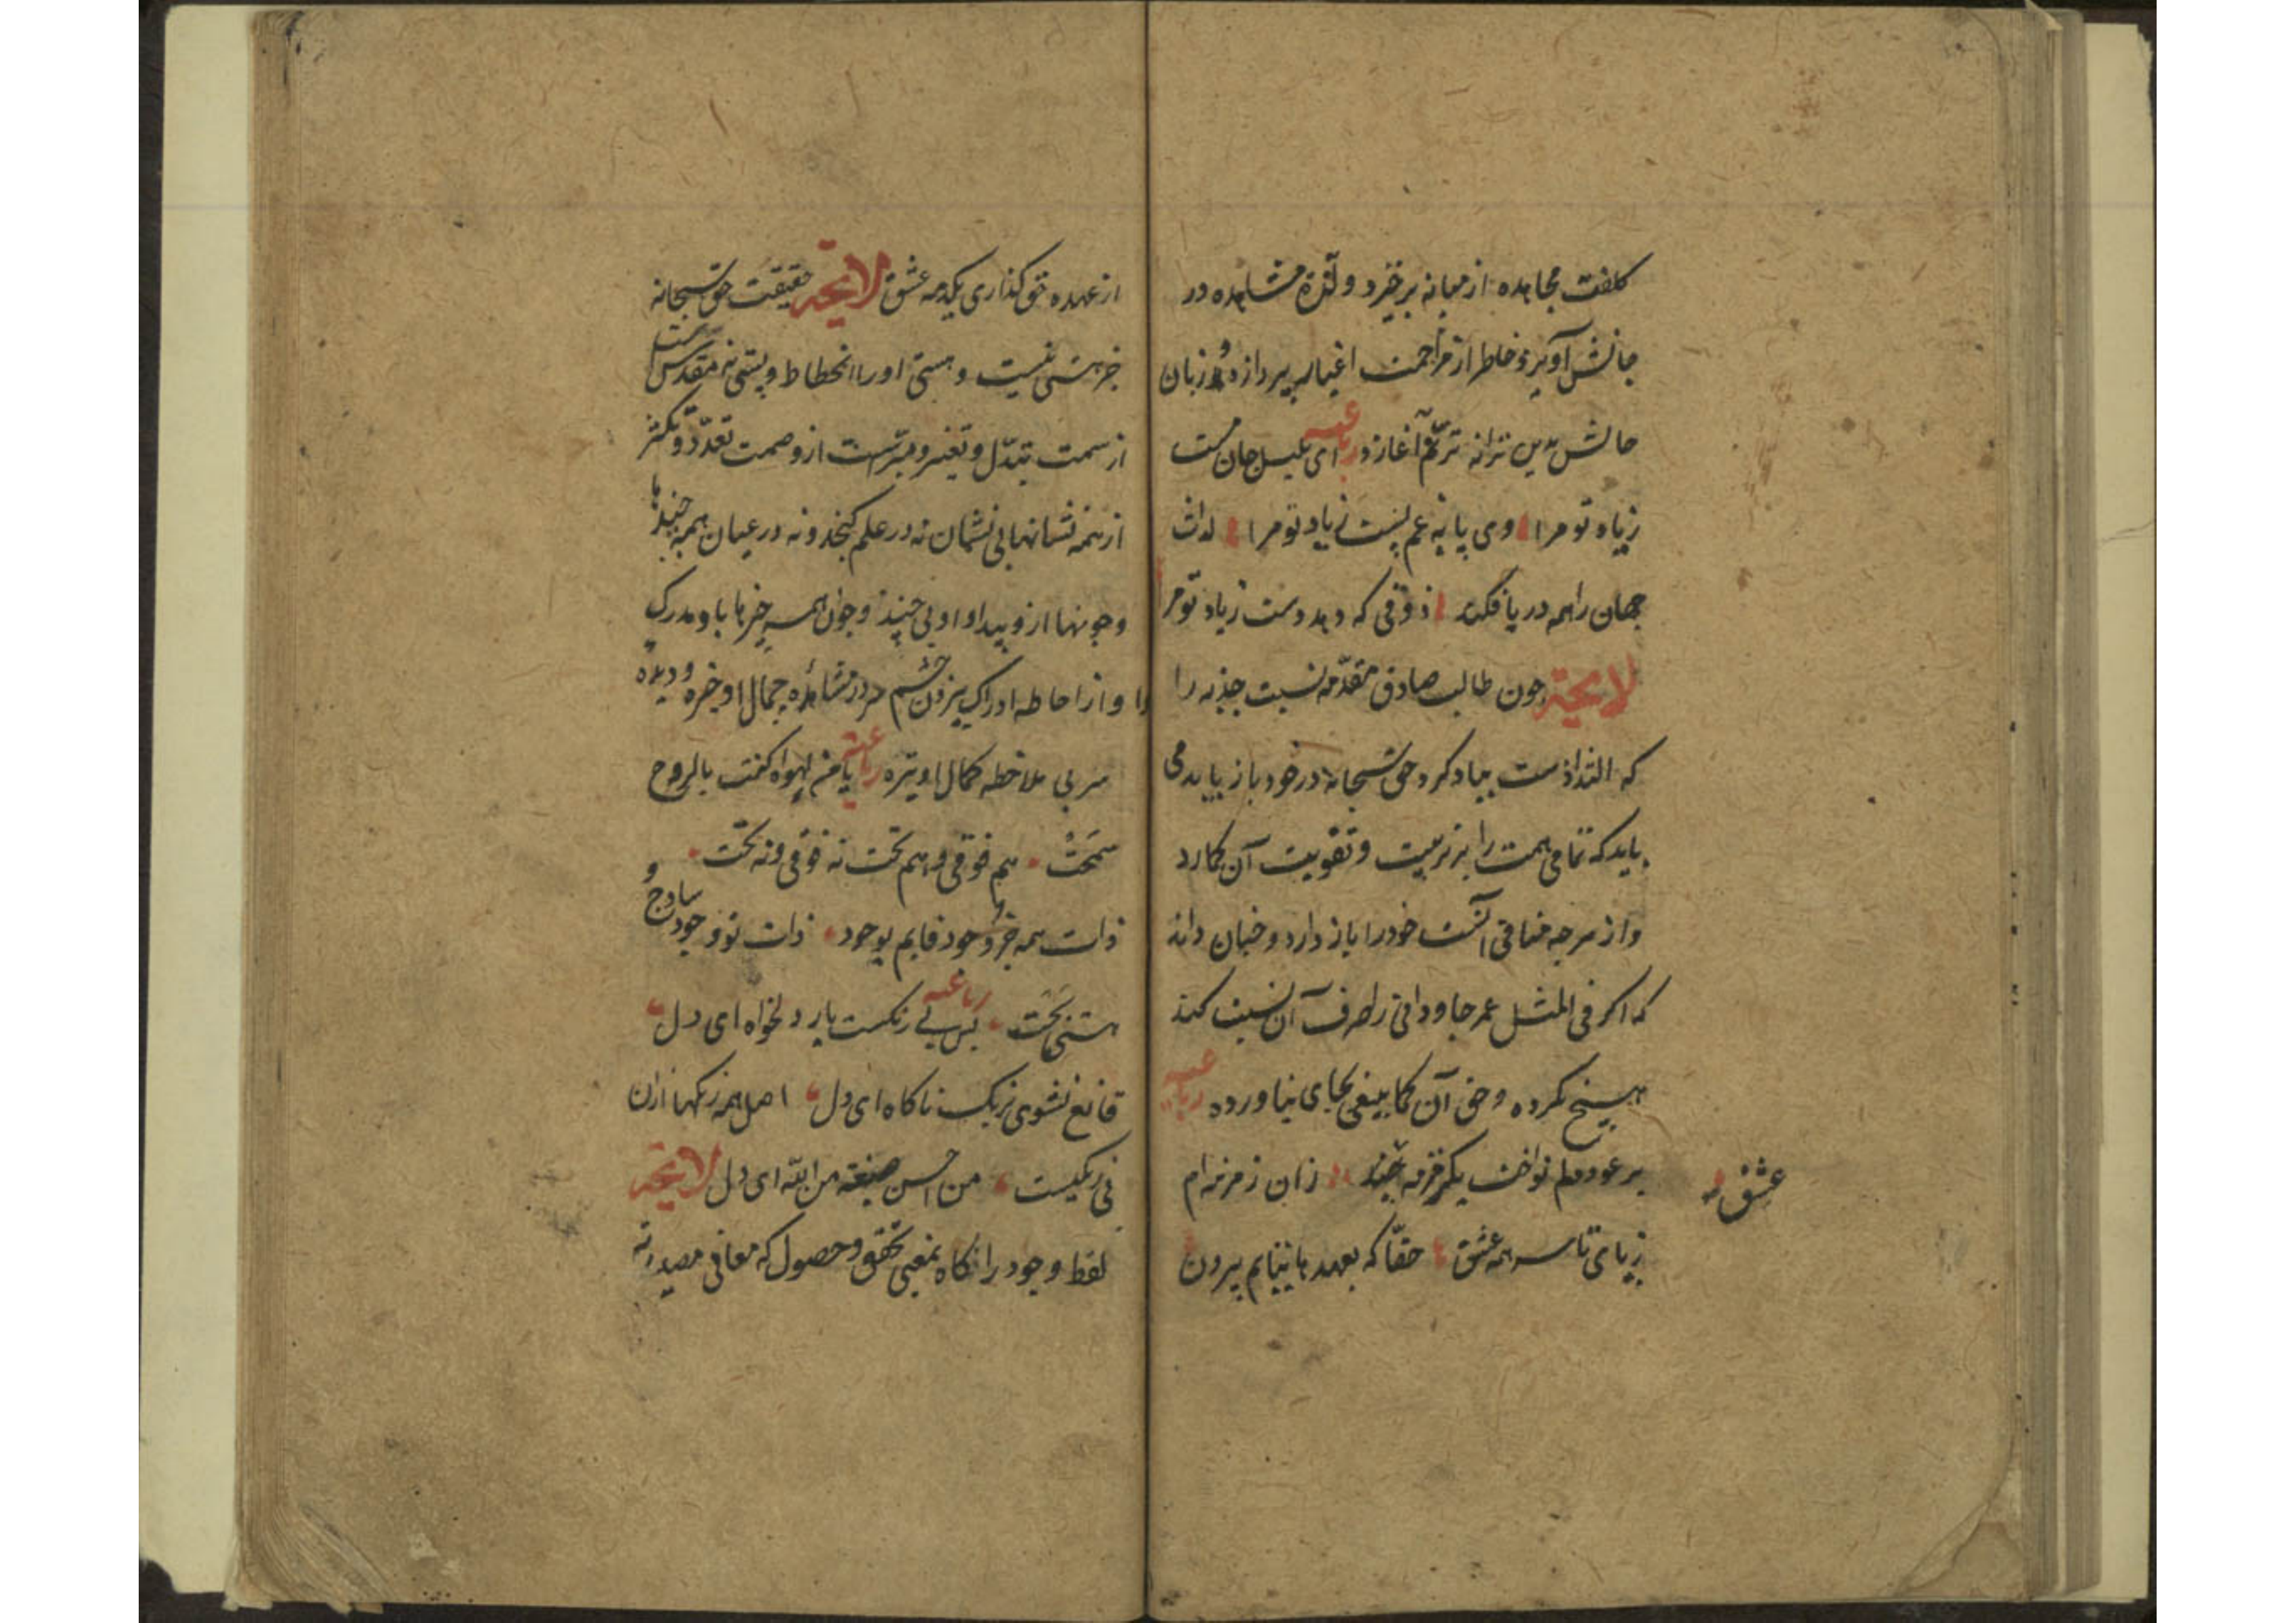 کلفت مجاهده از میانه برخیزد و لذة مشاهده در
جانش آویزد خاطر از مزاحمت اغیار بپردازد و زبان
حالش بدین ترانه ترنم آغازد رباعیه ای بلبل جان مست
زیاد تو مرا وی پایه غم پست زیاد تو مرا لذات
جهان را همه در پا فکند ذوقی که دهد دست زیاد تو مرا
لایحة چون طالب صادق مقدّمه نسبت جذبه را
که التذاذست بیاد کرد حق سبحانه در خود باز یابد می
باید که تمامی همت را بر تربیت و تقویت آن کمارد
و از هر چه منافی آنست خود را باز دارد و چنان داند
که اکر فی المثل عمر جاودانی را صرف آن نسبت کند
هیچ نکرده و حق آن کما ینبغی بجای نیاورده رباعیه
بر عود دلم نواخت یک زمزمه عشق زان زمزمه ام
ز پای تا سر همه عشق حقّا که بعهدها نیایم بیرون
از عهده حق کذاری یکدمه عشق لایحة حقیقت حق سبحانه
جز هستی نیست و هستی او را انحطاط و پستی نه مقدس است
از سمت تبدّل و تغیر و مبرّاست از وصمت تعدّد و تکثر
از همه نشانها بی نشان نه در علم کنجد و نه در عیان همه چندها
و چونها ازو پیدا و او بی چند و چون همه چیزها باو مدرک
و او از احاطه ادراک بیرون چشم سر در مشاهده جمال او خیره و دیده
سر بی ملاحظه کمال او تیره رباعیه یا من لهواه کنت بالروح
سمحت هم فوقی و هم تحت نه فوقی و نه تحت
ذات همه جز وجود قایم بوجود ذات تو وجود ساذج و
هستی بحت رباعیه بس بی رنکست یار دلخواه ای دل
قانع نشوی برنک ناکاه ای دل اصل همه رنکها ازان
بی رنکیست من احسن صبغة من الله ای دل لایحة
لفظ وجود را کاه بمعنی تحقق و حصول که معانی مصدریه